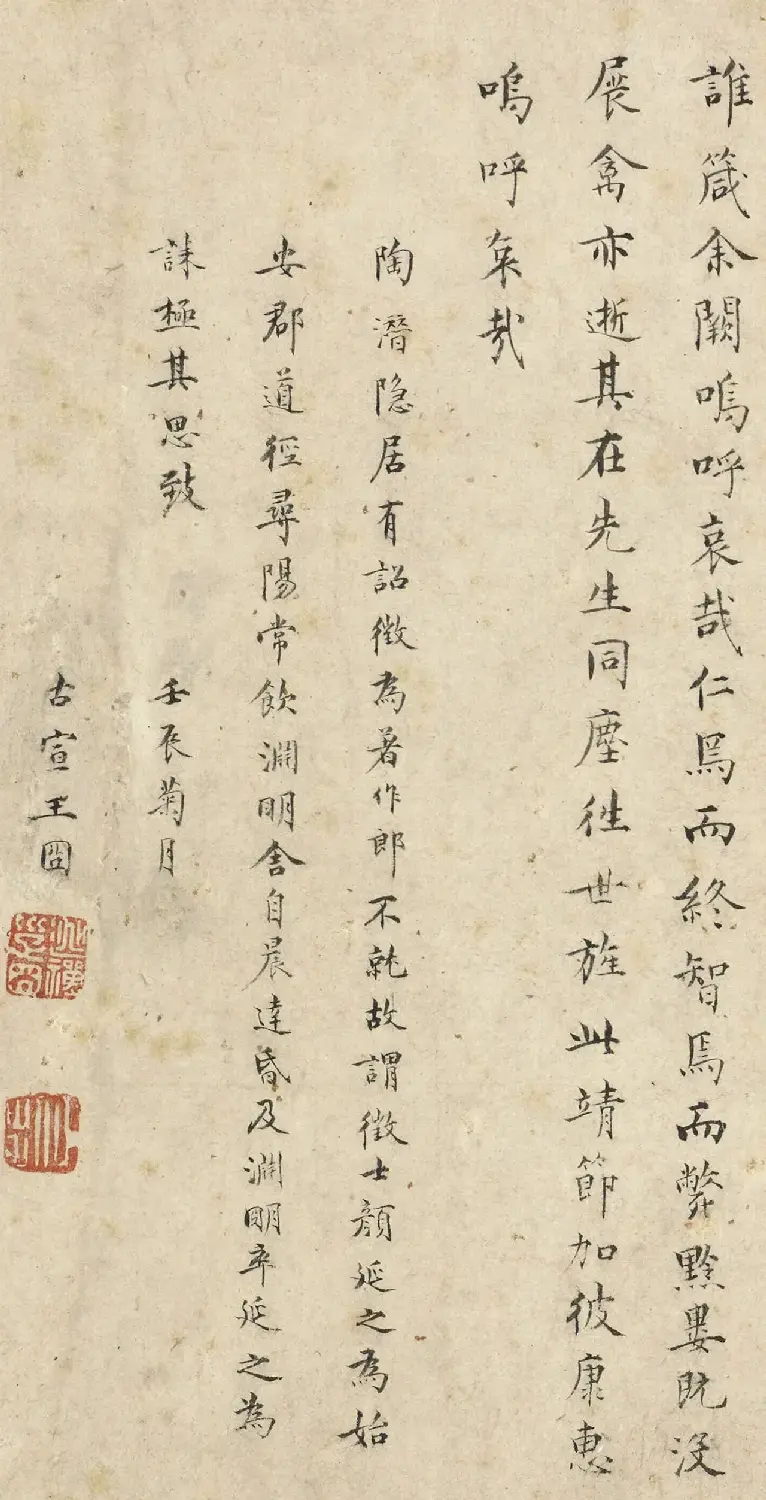 誰箴余闕嗚呼哀哉仁焉而終智焉而斃黔婁既沒
展禽亦逝其在先生同塵徃世旌此靖節加彼康惠
嗚呼哀哉
陶潛隐居有詔徵為著作郎不就故謂徵士顏延之為始
安郡道徑尋陽常飲淵明舍自晨達昏及淵明卒延之為
誄極其思致
壬辰菊月
古宣王圂